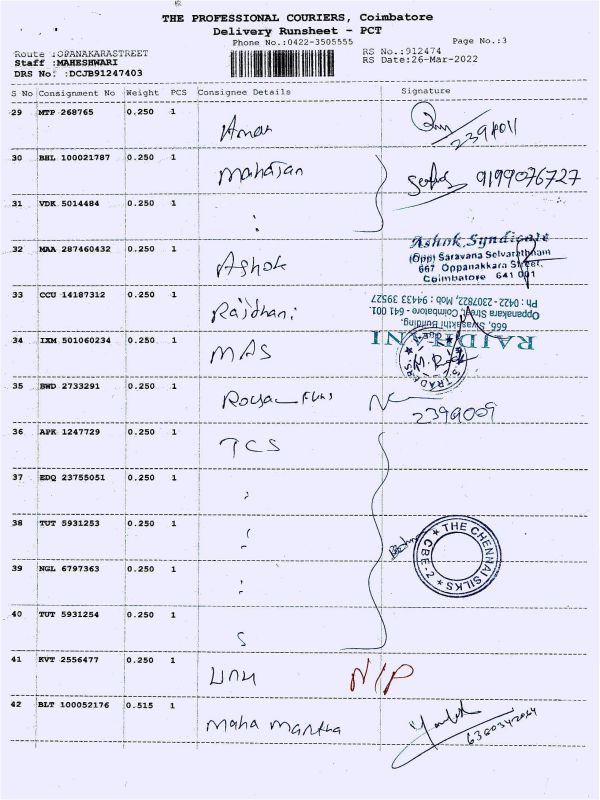 THE PROFESSIONAL COURIERS, Coimbatore
Delivery Runsheet - PCT
Phone No.:0422-3505555
Page No.:3
Route :OPANAKARASTREET
RS No.:912474
Staff :MAHESHWARI
RS Date:26-Mar-2022
DRS No: :DCJB91247403
S No Consignment No Weight PCS Consignee Details Signature
29 MTP 268765 0.250 1 Aman
30 BHL 100021787 0.250 1 Mahajan 9199076727
31 VDK 5014484 0.250 1
32 MAA 287460432 0.250 1 Ashok
Ashok Syndicate
(Opp) Saravana Selvarathnam
667 Oppanakkara Street,
Coimbatore 641 001
33 CCU 14187312 0.250 1 Rajdhani
RAJDHANI
666, Sivasakthi Building,
Oppanakara Street, Coimbatore - 641 001.
Ph : 0422 - 2307827, Mob : 94433 39527
34 IXM 501060234 0.250 1 MAS
35 BWD 2733291 0.250 1
36 APK 1247729 0.250 1 TCS
37 EDQ 23755051 0.250 1
38 TUT 5931253 0.250 1
THE CHENNAI SILKS
CBE-2
39 NGL 6797363 0.250 1
40 TUT 5931254 0.250 1
41 KVT 2556477 0.250 1 N/P
42 BLT 100052176 0.515 1 Maha Mantha